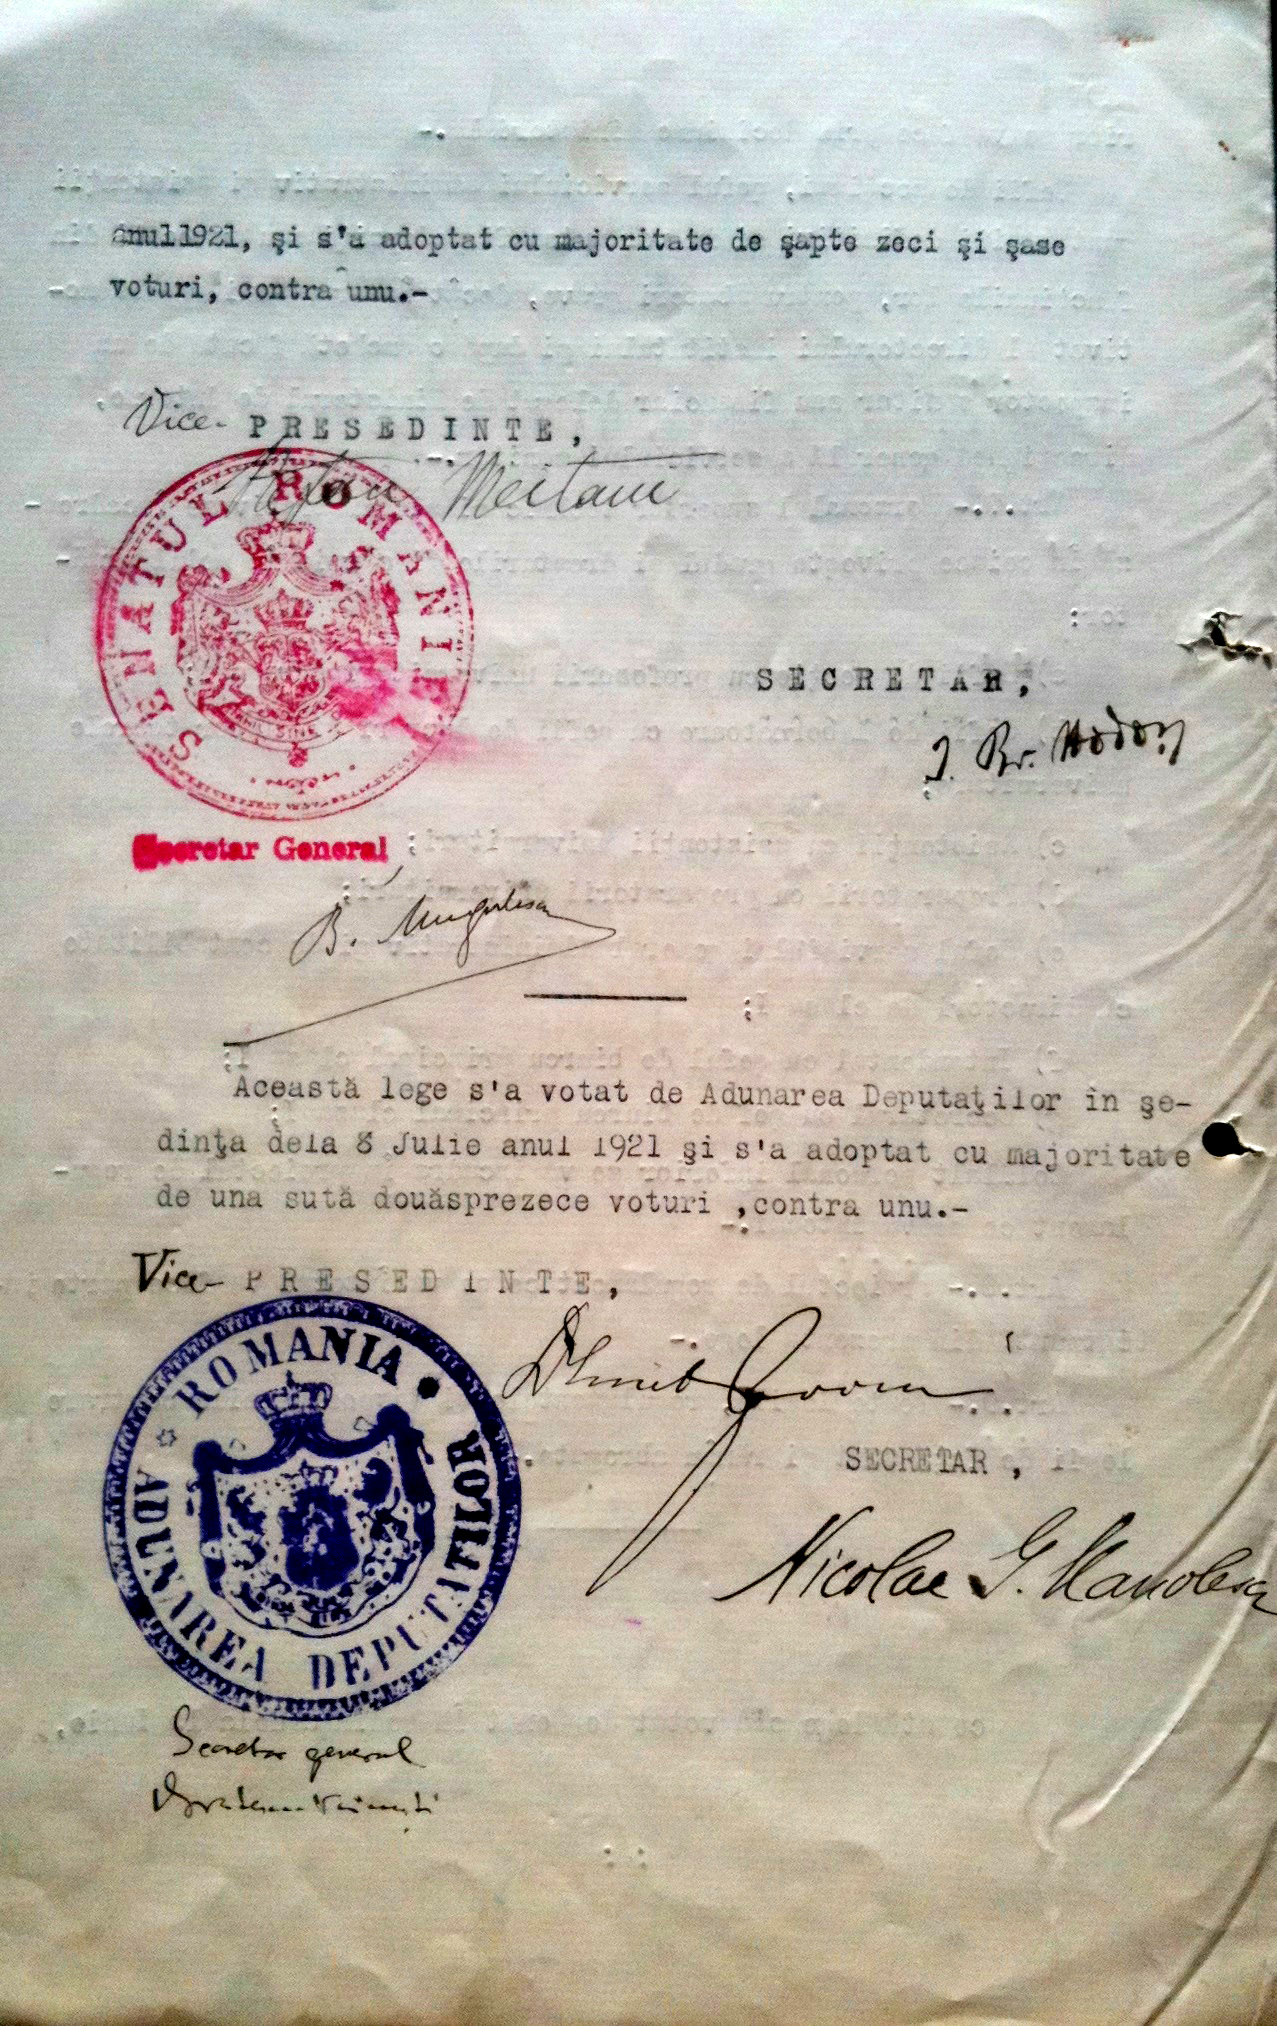 anul1921, şi s'a adoptat cu majoritate de şapte zeci şi şase
voturi, contra unu.-
Vice- PRESEDINTE,
Meitani
SENATUL ROMANIEI
SECRETAR,
I. Br. Hodoş
Secretar General
B.
Această lege s'a votat de Adunarea Deputaţilor în şe-
dinţa dela 8 Julie anul 1921 şi s'a adoptat cu majoritate
de una sută douăsprezece voturi ,contra unu.-
Vice- PRESEDINTE,
ROMANIA
ADUNAREA DEPUTATILOR
SECRETAR ,
Nicolae G. Manolescu
Secretar general